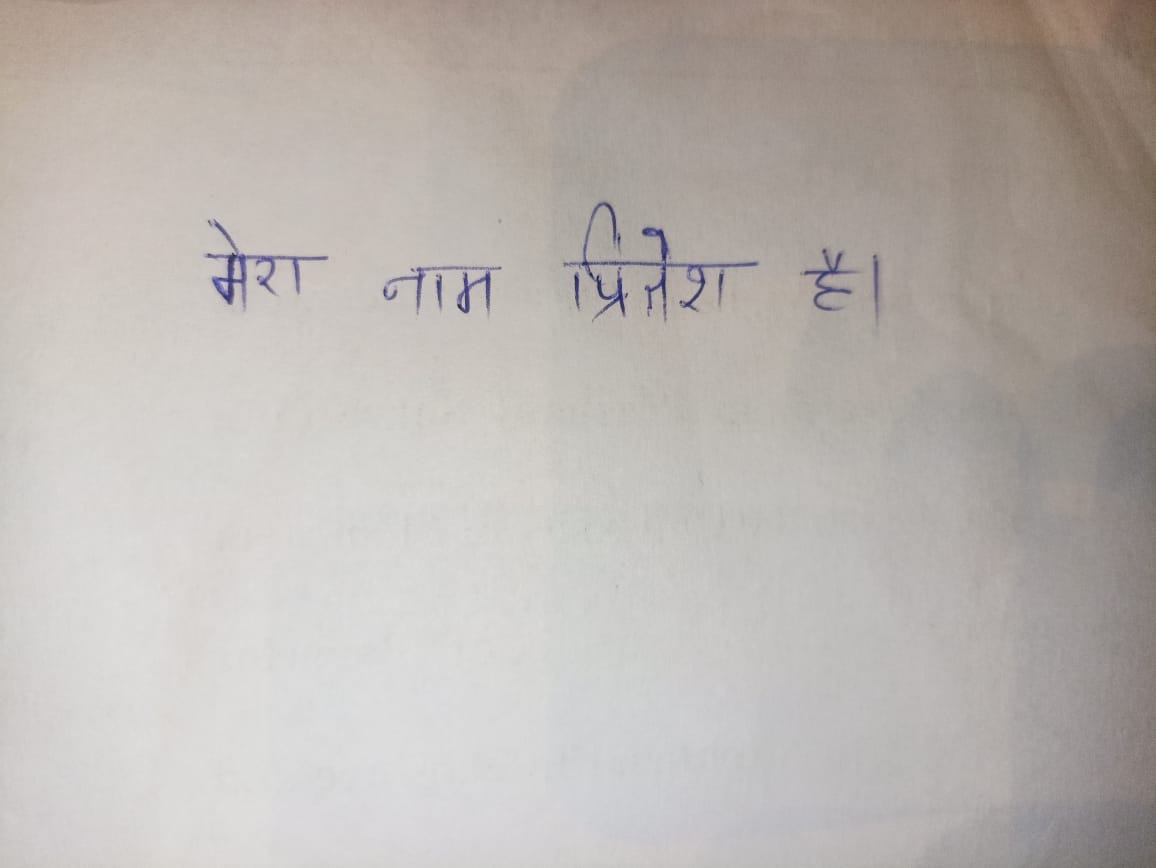 मेरा नाम प्रितेश है।